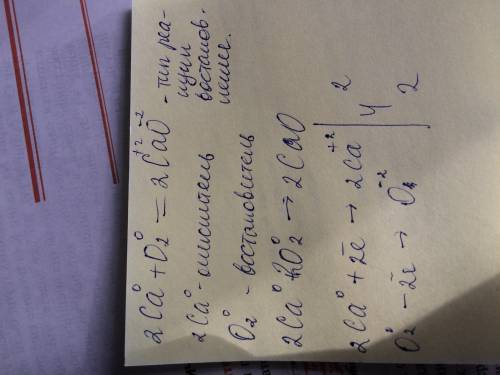 2Ca⁰ + O₂⁰ = 2Ca⁺²O⁻² - тип реакции восстановление.
2Ca⁰ - окислитель
O₂⁰ - восстановитель
2Ca⁰ + O₂⁰ → 2CaO
2Ca⁰ + 2ē → 2Ca⁺² | 4 | 2
O₂⁰ - 2ē → O⁻² | 2